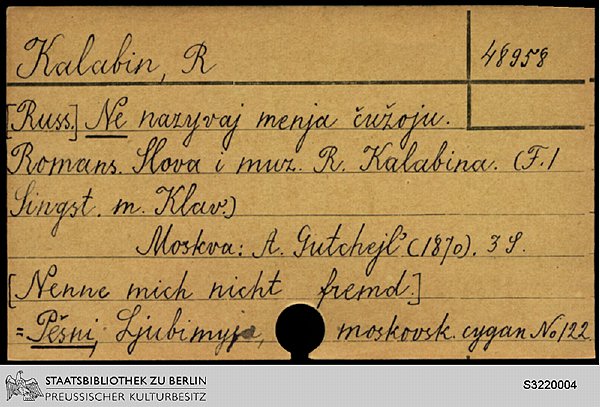 Kalabin, R
48958
[Russ.] Ne nazyvaj menja čužoju.
Romans. Slova i muz. R. Kalabina. (F. 1
Singst. m. Klav.)
Moskva: A. Gutchejl' (1870). 3 S.
[Nenne mich nicht fremd.]
= Pěsni, Ljubimyja, moskovsk. cygan No 122.
STAATSBIBLIOTHEK ZU BERLIN
PREUSSISCHER KULTURBESITZ
S3220004